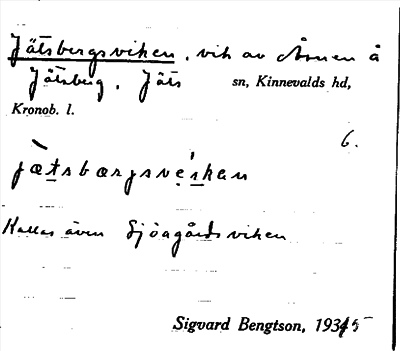 Jätsbergsviken, vik av Åsnen å
Jätsberg, Jäts sn, Kinnevalds hd,
Kronob. l.
6.
jætsbærjsve̩kan
Kallas även Sjöagårdsviken
Sigvard Bengtson, 1935